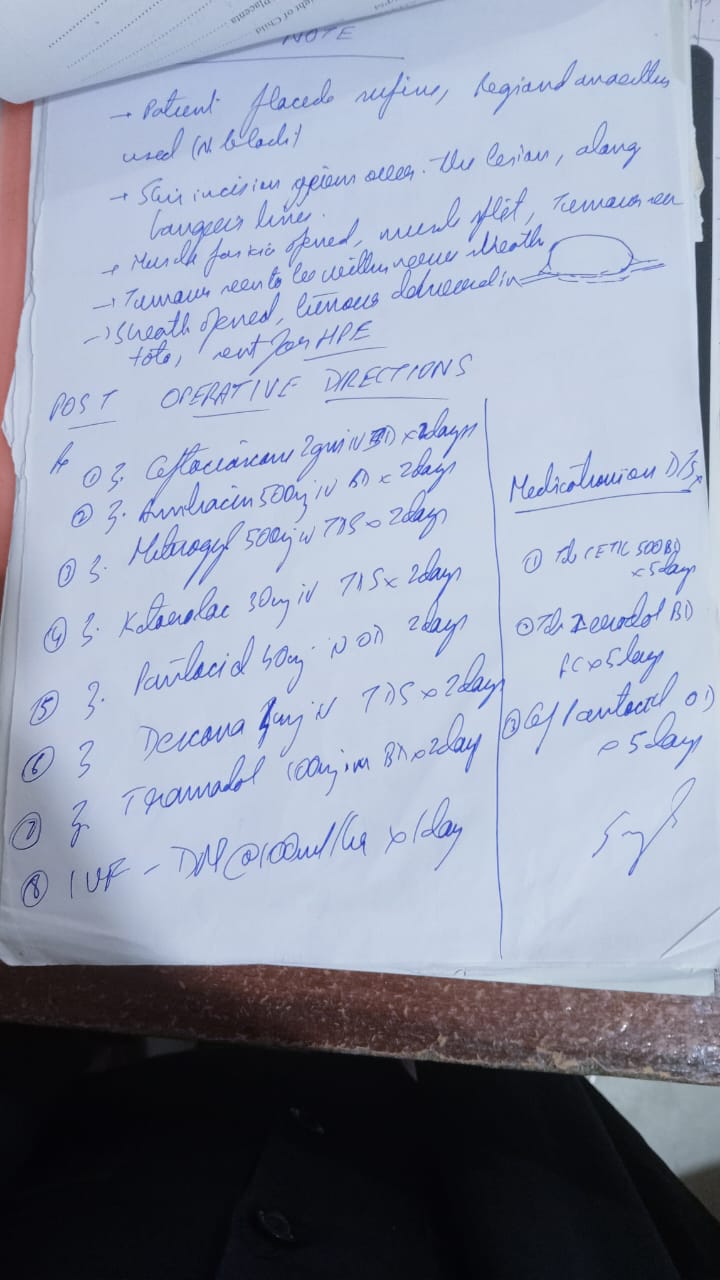 ght of Child
Placenta
NOTE
→ Patient placed supine, Regional anaesthesia
used (N block)
→ Skin incision given over the lesion, along
Langers lines.
→ Muscle fascia opened, muscle split, Tumour seen
→ Tumour seen to be within nerve sheath
→ Sheath opened, tumour delivered in
toto, sent for HPE
POST OPERATIVE DIRECTIONS
① Ceftriaxone 2gm IV BD x 2days
② 500mg IV BD x 2days
③ Metrogyl 500mg IV TDS x 2days
④ Ketorolac 30mg IV TDS x 2days
⑤ Pantocid 40mg IV OD 2days
⑥ Dexona mg IV TDS x 2days
⑦ Tramadol 100mg IM BD x 2day
⑧ IVF - @100ml/hr x 1day
Medication on D/S
① Tab CETIL 500 BD
x 5days
② Tab Zerodol BD
x 5days
③ Pantocid OD
x 5days